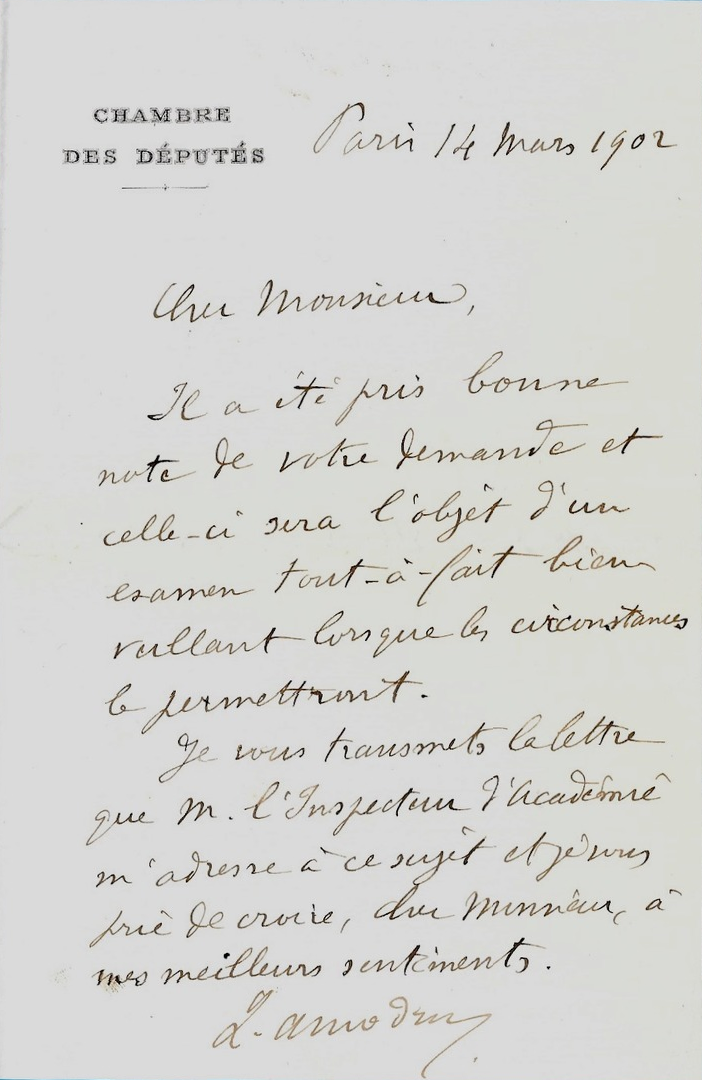 CHAMBRE
DES DÉPUTÉS
Paris 14 Mars 1902
Cher Monsieur,
Il a été pris bonne
note de votre demande et
celle-ci sera l'objet d'un
examen tout-à-fait bien
veillant lorsque les circonstances
le permettront.
Je vous transmets la lettre
que M. l'Inspecteur d'Académie
m'adresse à ce sujet et je vous
prie de croire, cher Monsieur, à
mes meilleurs sentiments.
L. Amodru